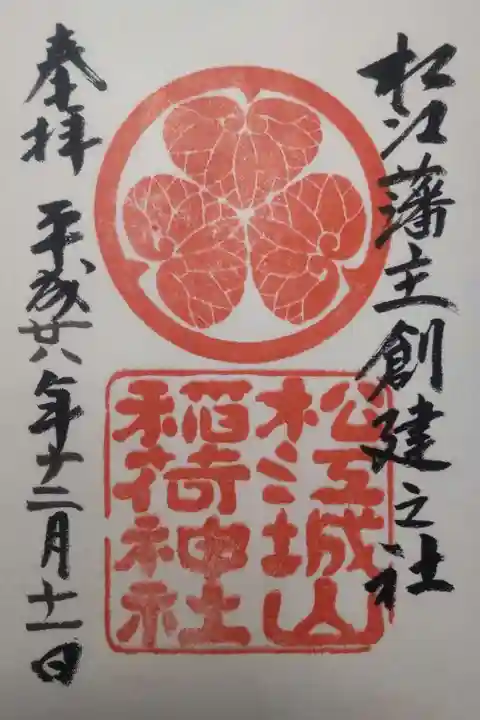 松江藩主創建之社
松江城山
稲荷神社
奉拝
平成廿八年十二月十一日